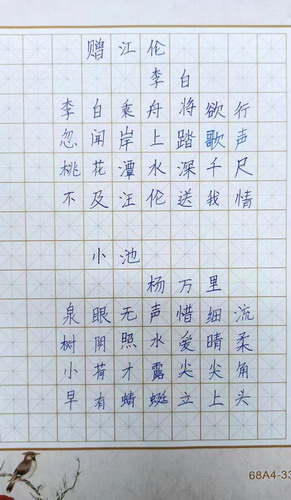 赠江伦
李白
李白乘舟将欲行
忽闻岸上踏歌声
桃花潭水深千尺
不及汪伦送我情
小池
杨万里
泉眼无声惜细流
树阴照水爱晴柔
小荷才露尖尖角
早有蜻蜓立上头
68A4-33